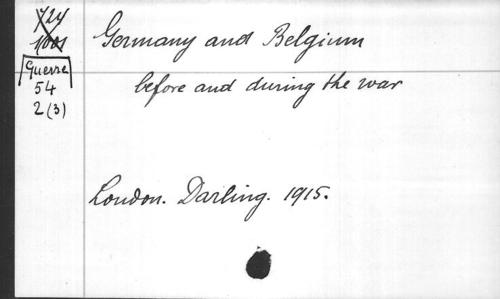 Germany and Belgium
before and during the war
London. Darling. 1915.
Guerre
54
2(3)